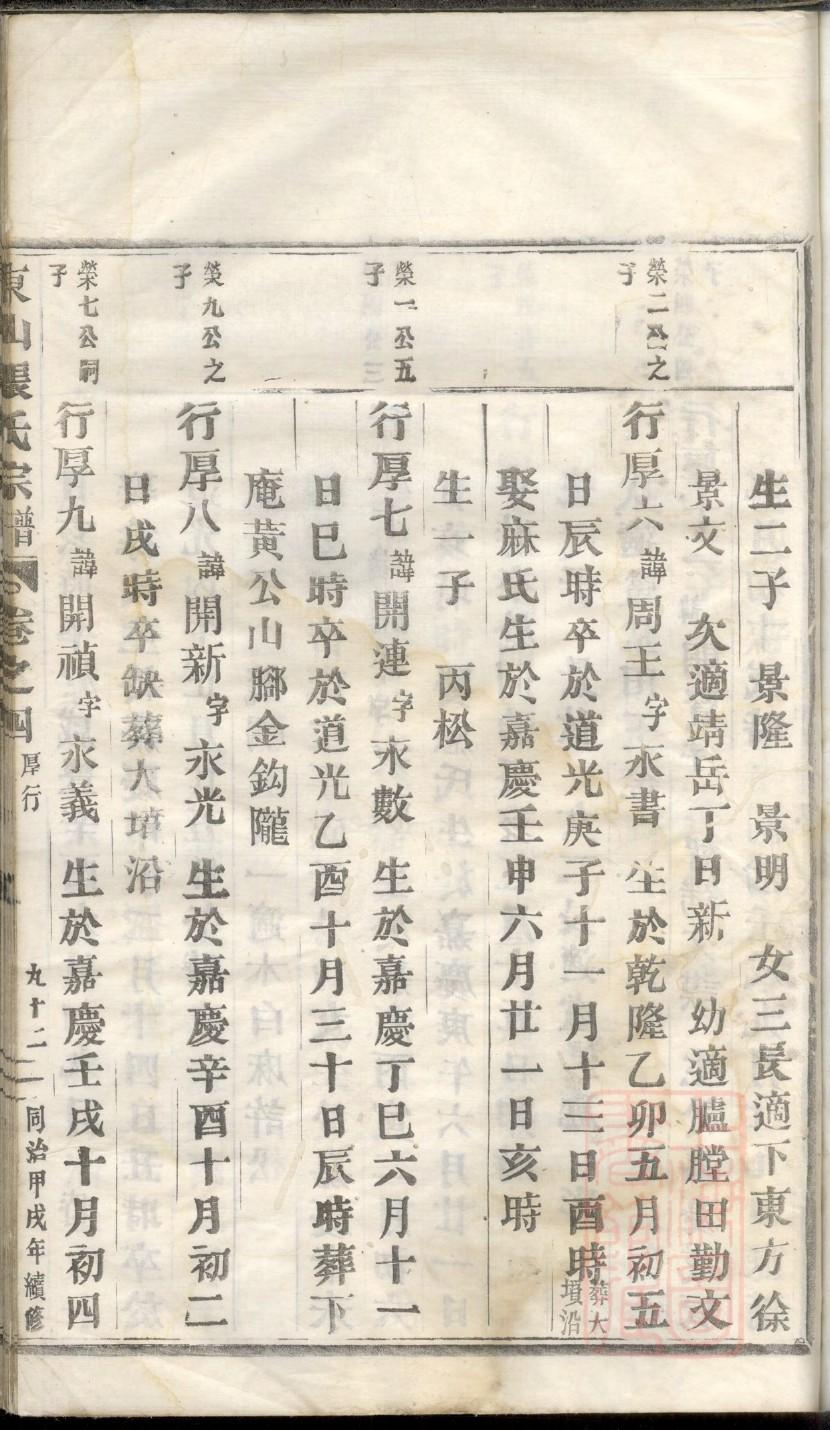 生二子 景隆 景明 女三長適下東方徐
景文 次適靖岳丁日新 幼適臚膛田勤文
榮二公之子
行厚六諱周王字永書 生於乾隆乙卯五月初五
日辰時卒於道光庚子十一月十三日酉時葬大墳沿
娶麻氏生於嘉慶壬申六月廿一日亥時
生一子 丙松
榮一公五子
行厚七諱開連字永數 生於嘉慶丁巳六月十一
日巳時卒於道光乙酉十月三十日辰時葬下
庵黃公山腳金鈎隴
榮九公之子
行厚八諱開新字永光 生於嘉慶辛酉十月初二
日戌時卒缺葬大墳沿
榮七公嗣子
行厚九諱開禎字永義 生於嘉慶壬戌十月初四
東山張氏宗譜 卷之四 厚行 九十二 同治甲戌年續修